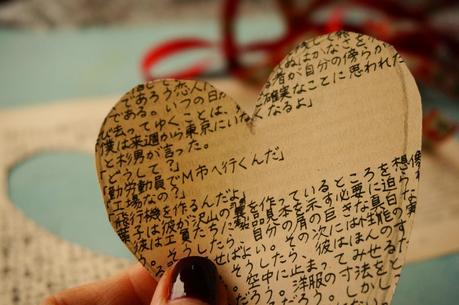 後して発
ぬはかなさをわ
恋人
者が自分の傍らか
であろう。いつの日か
確実なことに思われた
び去ってゆくことは、
「僕は来週から東京にいなくなるよ」
と杉男が言った。
「どうして?」
「勤労動員で、M市へ行くんだ」
「工場なの?」
「飛行機を作るんだよ」
葉子は彼が沢山の翼を作っているところを想像
彼は工員たちに、部品見本を示す必要に迫ら
そうしたら、自分の肩の巨きな真白な
せばよい。その次には性能の
そうしたら、彼はほんのす
空中に止まってみせるだ
だろう。洋服の寸法をと
だろう。しかし